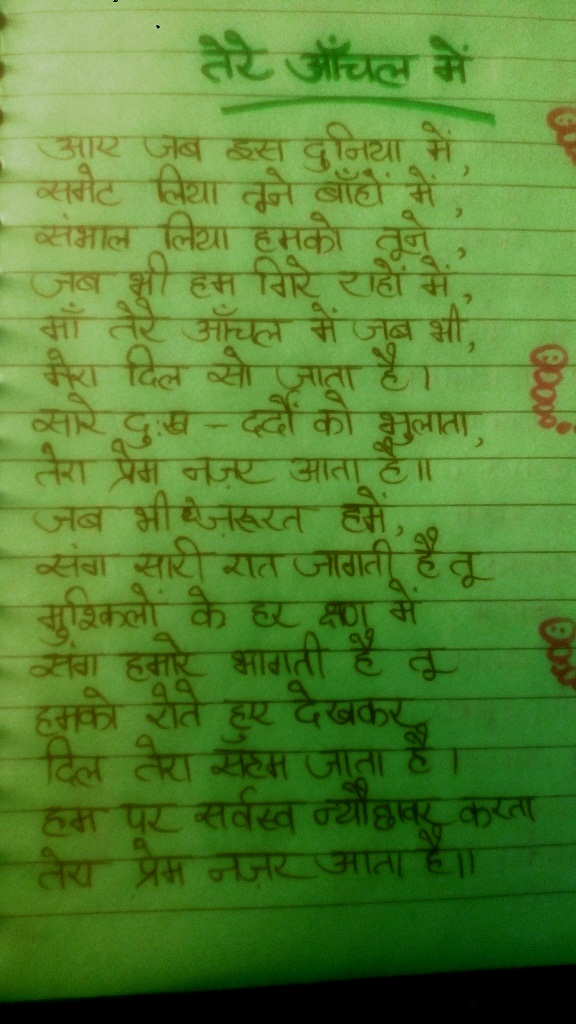 तेरे आँचल में
आए जब इस दुनिया में,
समेट लिया तूने बाँहों में,
संभाल लिया हमको तूने,
जब भी हम गिरे राहों में,
माँ तेरे आँचल में जब भी,
मेरा दिल सो जाता है।
सारे दुःख - दर्दों को भुलाता,
तेरा प्रेम नज़र आता है॥
जब भी ज़रूरत हमें,
संग सारी रात जागती है तू
मुश्किलों के हर क्षण में
संग हमारे भागती है तू
हमको रोते हुए देखकर
दिल तेरा सहम जाता है।
हम पर सर्वस्व न्यौछावर करता
तेरा प्रेम नज़र आता है॥